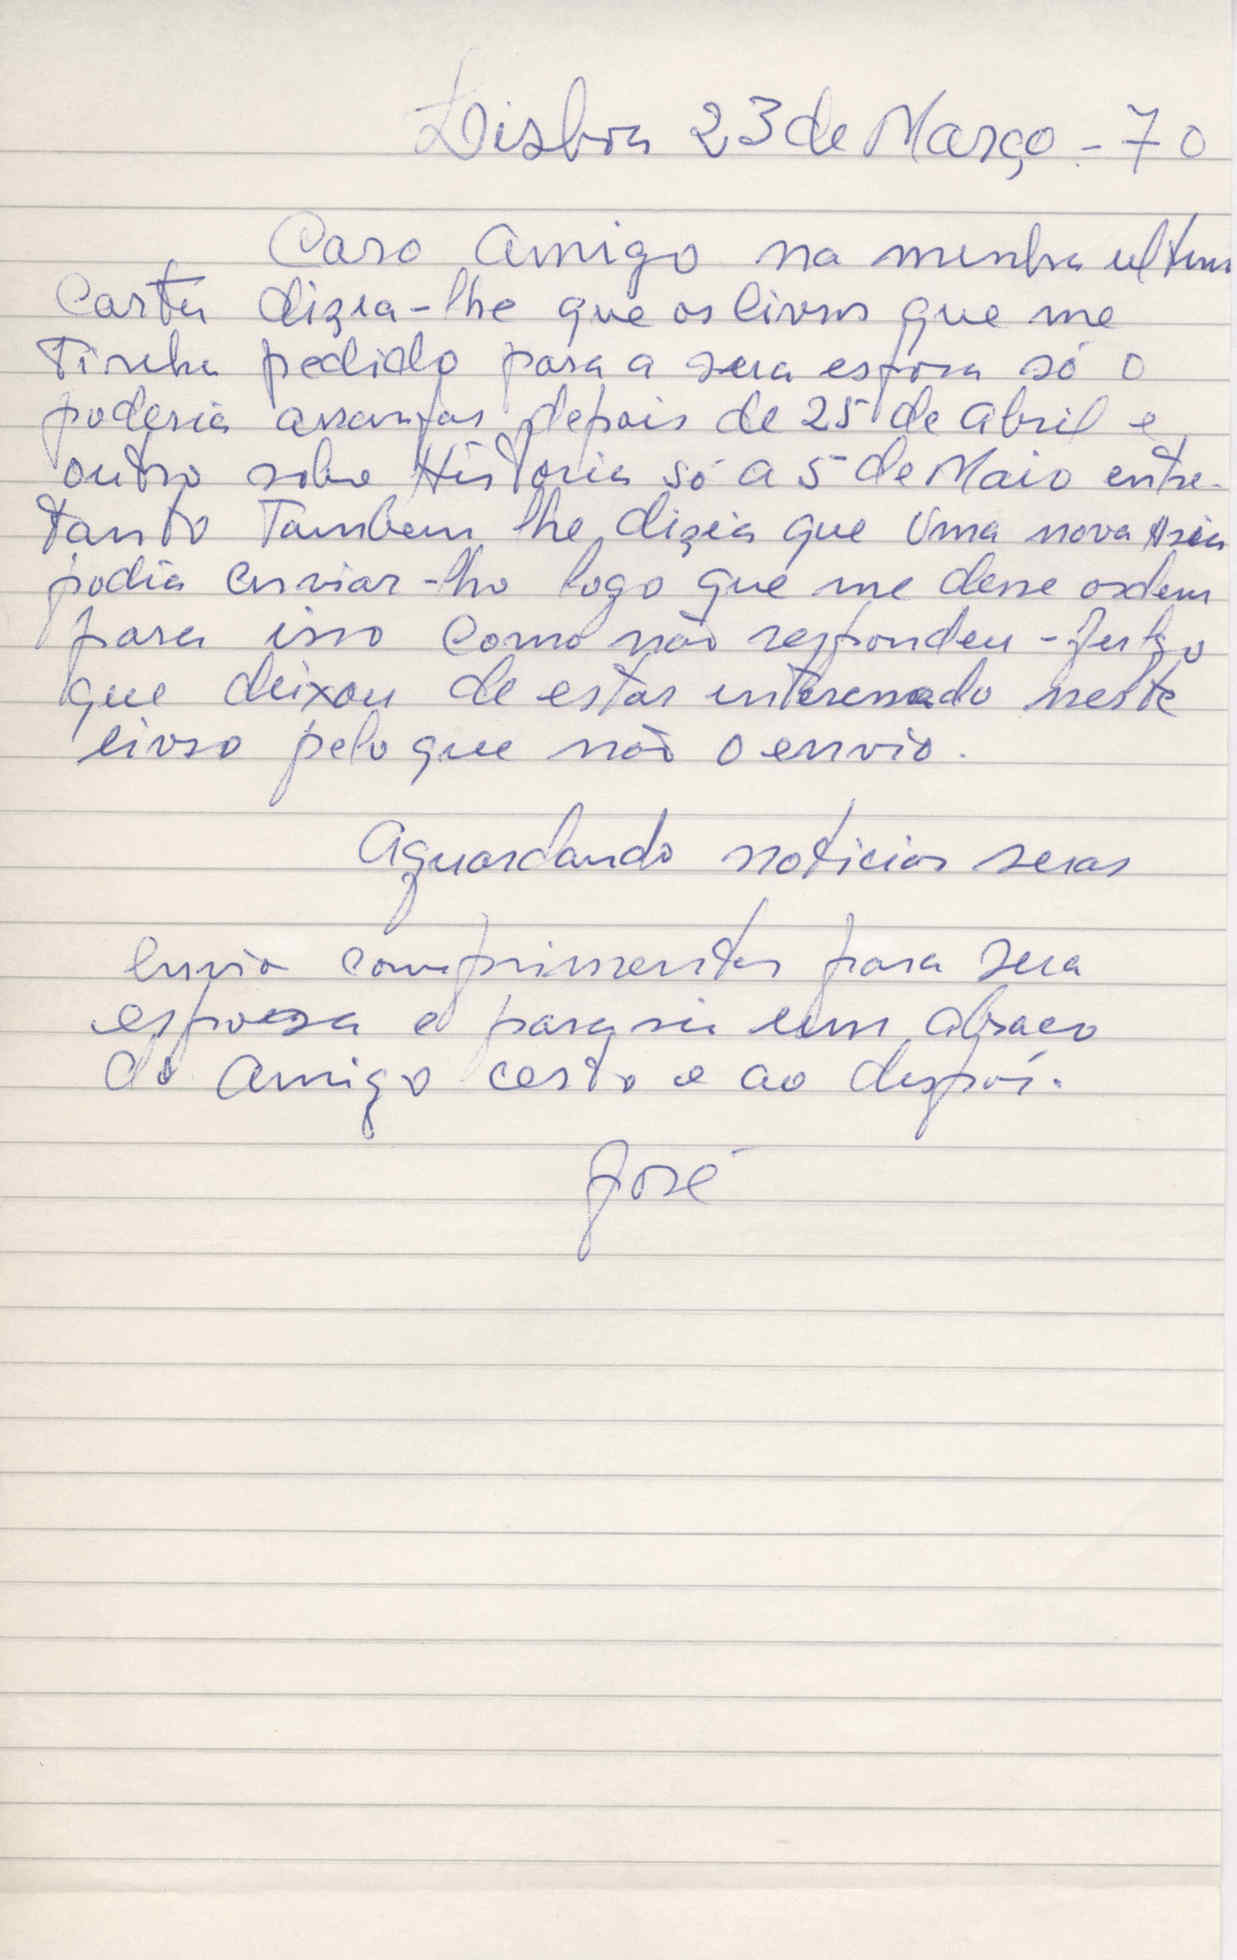 Lisboa 23 de Março - 70
Caro Amigo na minha ultima
Carta dizia-lhe que os livros que me
Tinha pedido para a sua esposa só o
poderia arranjar depois de 25 de Abril e
outro sobre História só a 5 de Maio entre-
tanto Tambem lhe dizia que Uma nova Asia
podia enviar-lho logo que me desse ordem
para isso Como não respondeu - Julgo
que deixou de estar interessado neste
livro pelo que não o envio.
Aguardando noticias suas
envio comprimentos para sua
esposa e para si um abraço
do Amigo certo e ao dispor.
José